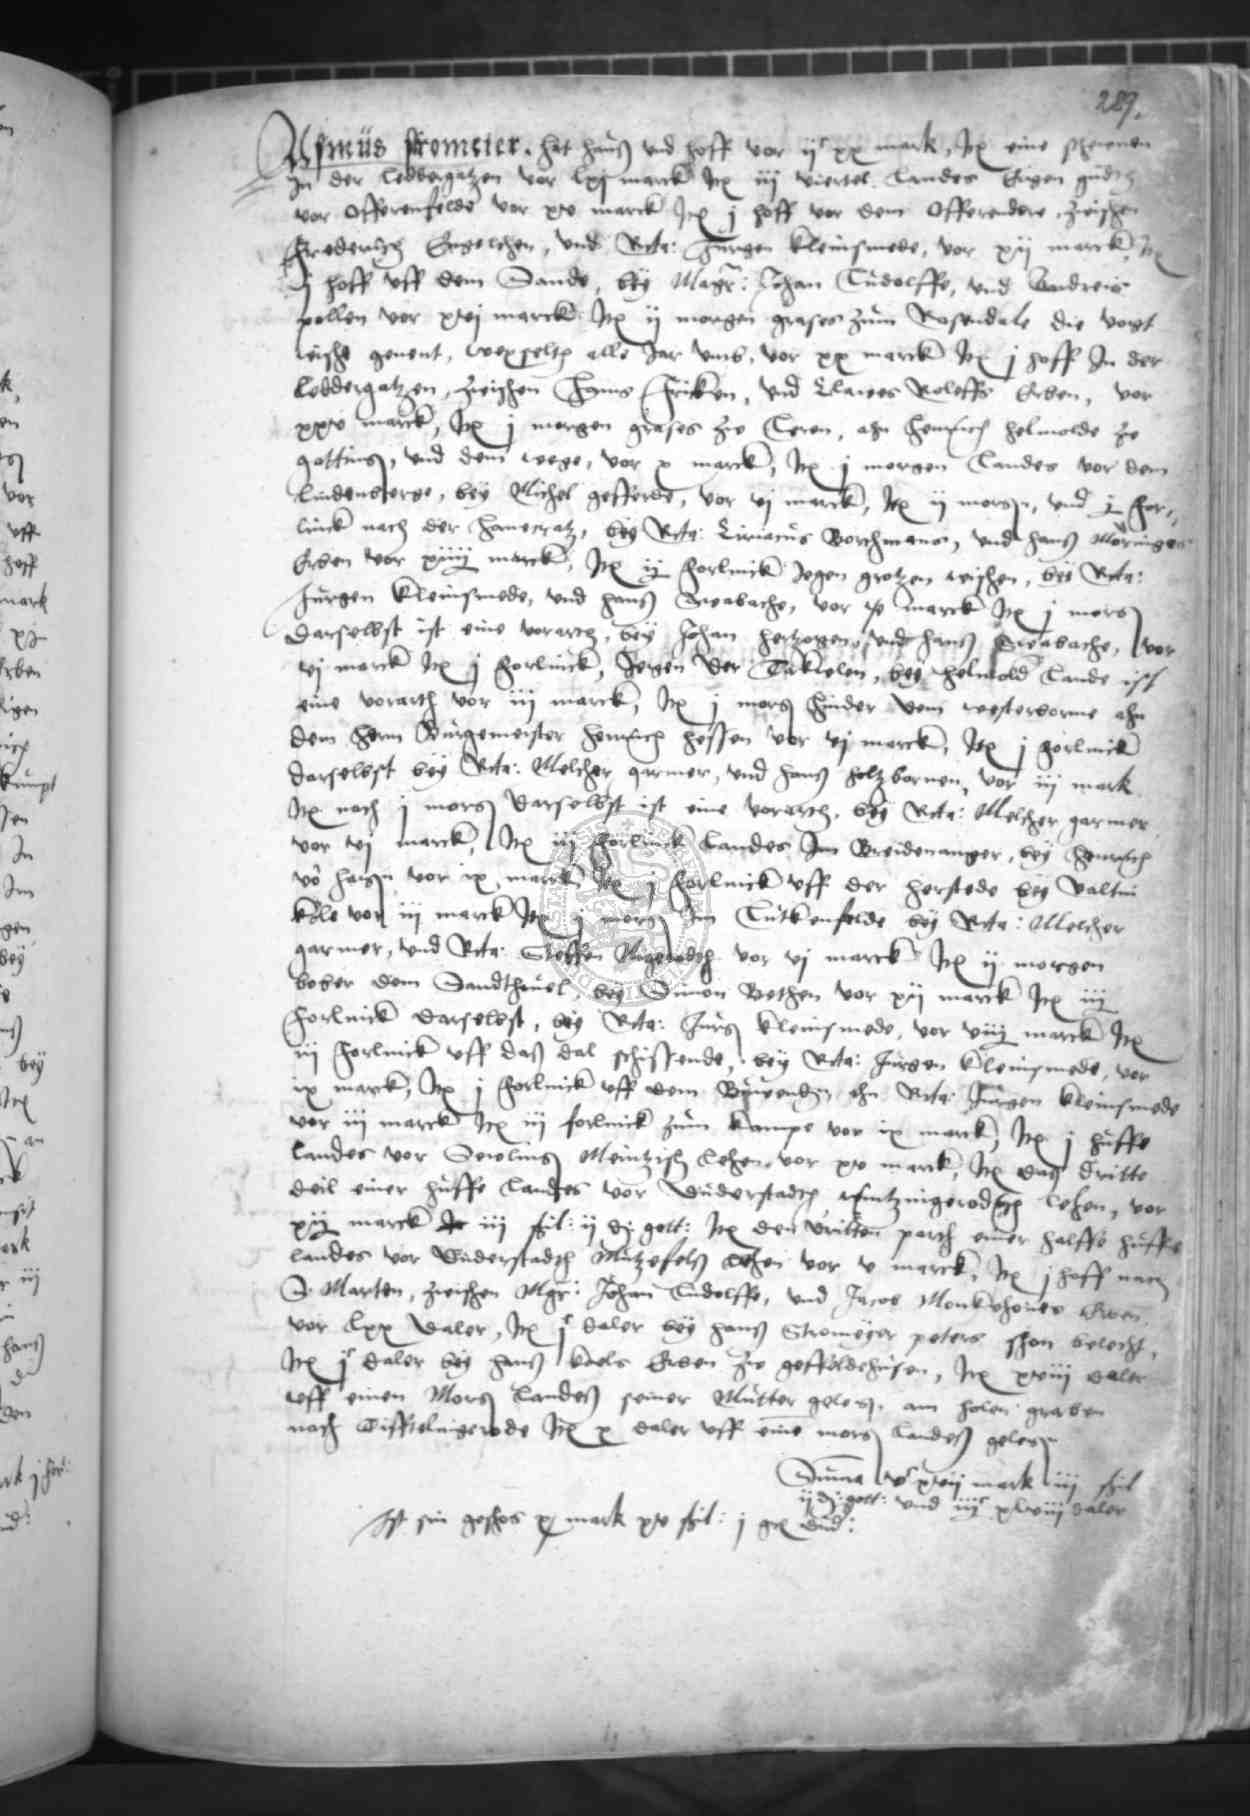 289.
Asmus stromeier. hat hauß vnd hoff vor ijc xx mark, Itē eine schewren
In der Leddergatzen vor lxj marck Itē iij viertel Landes Eigen gudtz
vor Offerenfelde vor xv marck Itē j hoff vor dem Offerendore, zwischen
Frederich Engelchen, vnd Rcta: Jurgen kleinsmede, vor xij marck, Itē
j hoff vff dem Sande, bey Magr: Johan Ludolffe, vnd Andreis
pollen vor xvj marck Itē ij morgen grases zum Rosendale die voigt
wische genent, wexselts alle Jar vmb, vor xx marck Itē j hoff In der
Leddergatzen, zwischen Hans Fricken, vnd Clawes Roleffs Erben, vor
xxv marck, Itē j morgen grases zw Leren, ahn Henrich helmolde zw
gottingen, vnd dem wege, vor x marck, Itē j morgen Landes vor dem
Lindenberge, bey Michel gefferde, vor vj marck, Itē ij morgen, vnd j For,,
linck nach der Hanecratz, bey Rcta: Ciriacus Borchmans, vnd Hanß Moringes
Erben vor xiiij marck, Itē ij Forlinck Jegen grotzen wischen, bey Rcta:
Jurgen kleinsmede, vnd hanß Swabache, vor marck Itē j morg
darselbst ist eine vorarth, bey Johan hertzogen, vnd hanß Swabache, vor
vj marck Itē j Forlinck, Jegen der Tuckielen, bey helmold Lande ist
eine vorarth vor iij marck, Itē j morg hinder dem westerborne ahn
dem Hern Burgemeister Henrich hessen vor vj marck, Itē j Forlinck
darselbst bey Rcta: Melcher garmer, vnd hanß holtzbornen, vor iij mark
Itē noch j morg darselbst ist eine vorarth, bey Rcta: Melcher garmer
vor vj marck, Itē iij Forlinck Landes Im Breidenanger, bey Henrich
vō hagen vor ix marck, Itē j Forlinck vff der herstede bey Valtin
kole vor iij marck Itē j morg Im Lutkenfelde bey Rcta: Melcher
garmer, vnd Rcta: Steffen vor vj marck Itē ij morgen
bober dem Sandtheuel, bey Simon Bethen vor xij marck Itē iij
Forlinck darselbst, bey Rcta: Jurg kleinsmede, vor viij marck Itē
iij Forlinck vff daß dal schissende, bey Rcta: Jurgen kleinsmede, vor
ix marck, Itē j Forlinck vff dem ahn Rcta: Jurgen kleinsmede
vor iij marck Itē iij forlinck zum kampe vor ix marck, Itē j huffe
Landes vor Meintzisch Lehen, vor xv marck, Itē daß dritte
deil einer huffe Landes vor Duderstadth, Lehen, vor
xij marck iij ßil: ij dj gott: Itē den dritten parth einer halffe huffe
Landes vor Duderstadth Lehen vor v marck, Itē j hoff nach
S. Marten, zwischen Mgr: Johan Ludolffe, vnd Jacob Erben
vor lxx daler, Itē jc daler bey hanß Stromeyer peters shon belecht,
Itē jc daler bey hanß Erben zw geffeldehusen, Itē xviij daler
vff einen Morg Landeß seiner Mutter gelegen, am holen graben
nach Tifftelingerode Itē x daler vff eine morg Landeß gelegen
Summa vc xvij mark iij ßil
ij dj gott: vnd iijc xlviij daler
Ist sin geschos x mark xv ßil: j gr dud: